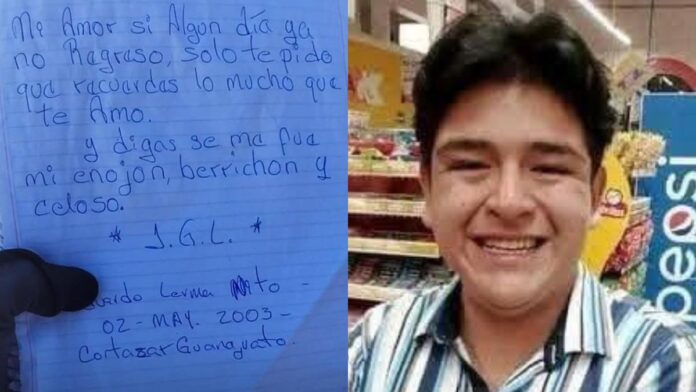 Mi Amor si Algun día ya
no Ragraso, solo te pido
que racuardas lo mucho que
te Amo.
y digas se ma fua
mi enojon, berrichon y
celoso.
* J.G.L. *
Lerma Nto -
02 - MAY. 2003 -
Cortazar Guanajuato.
pepsi